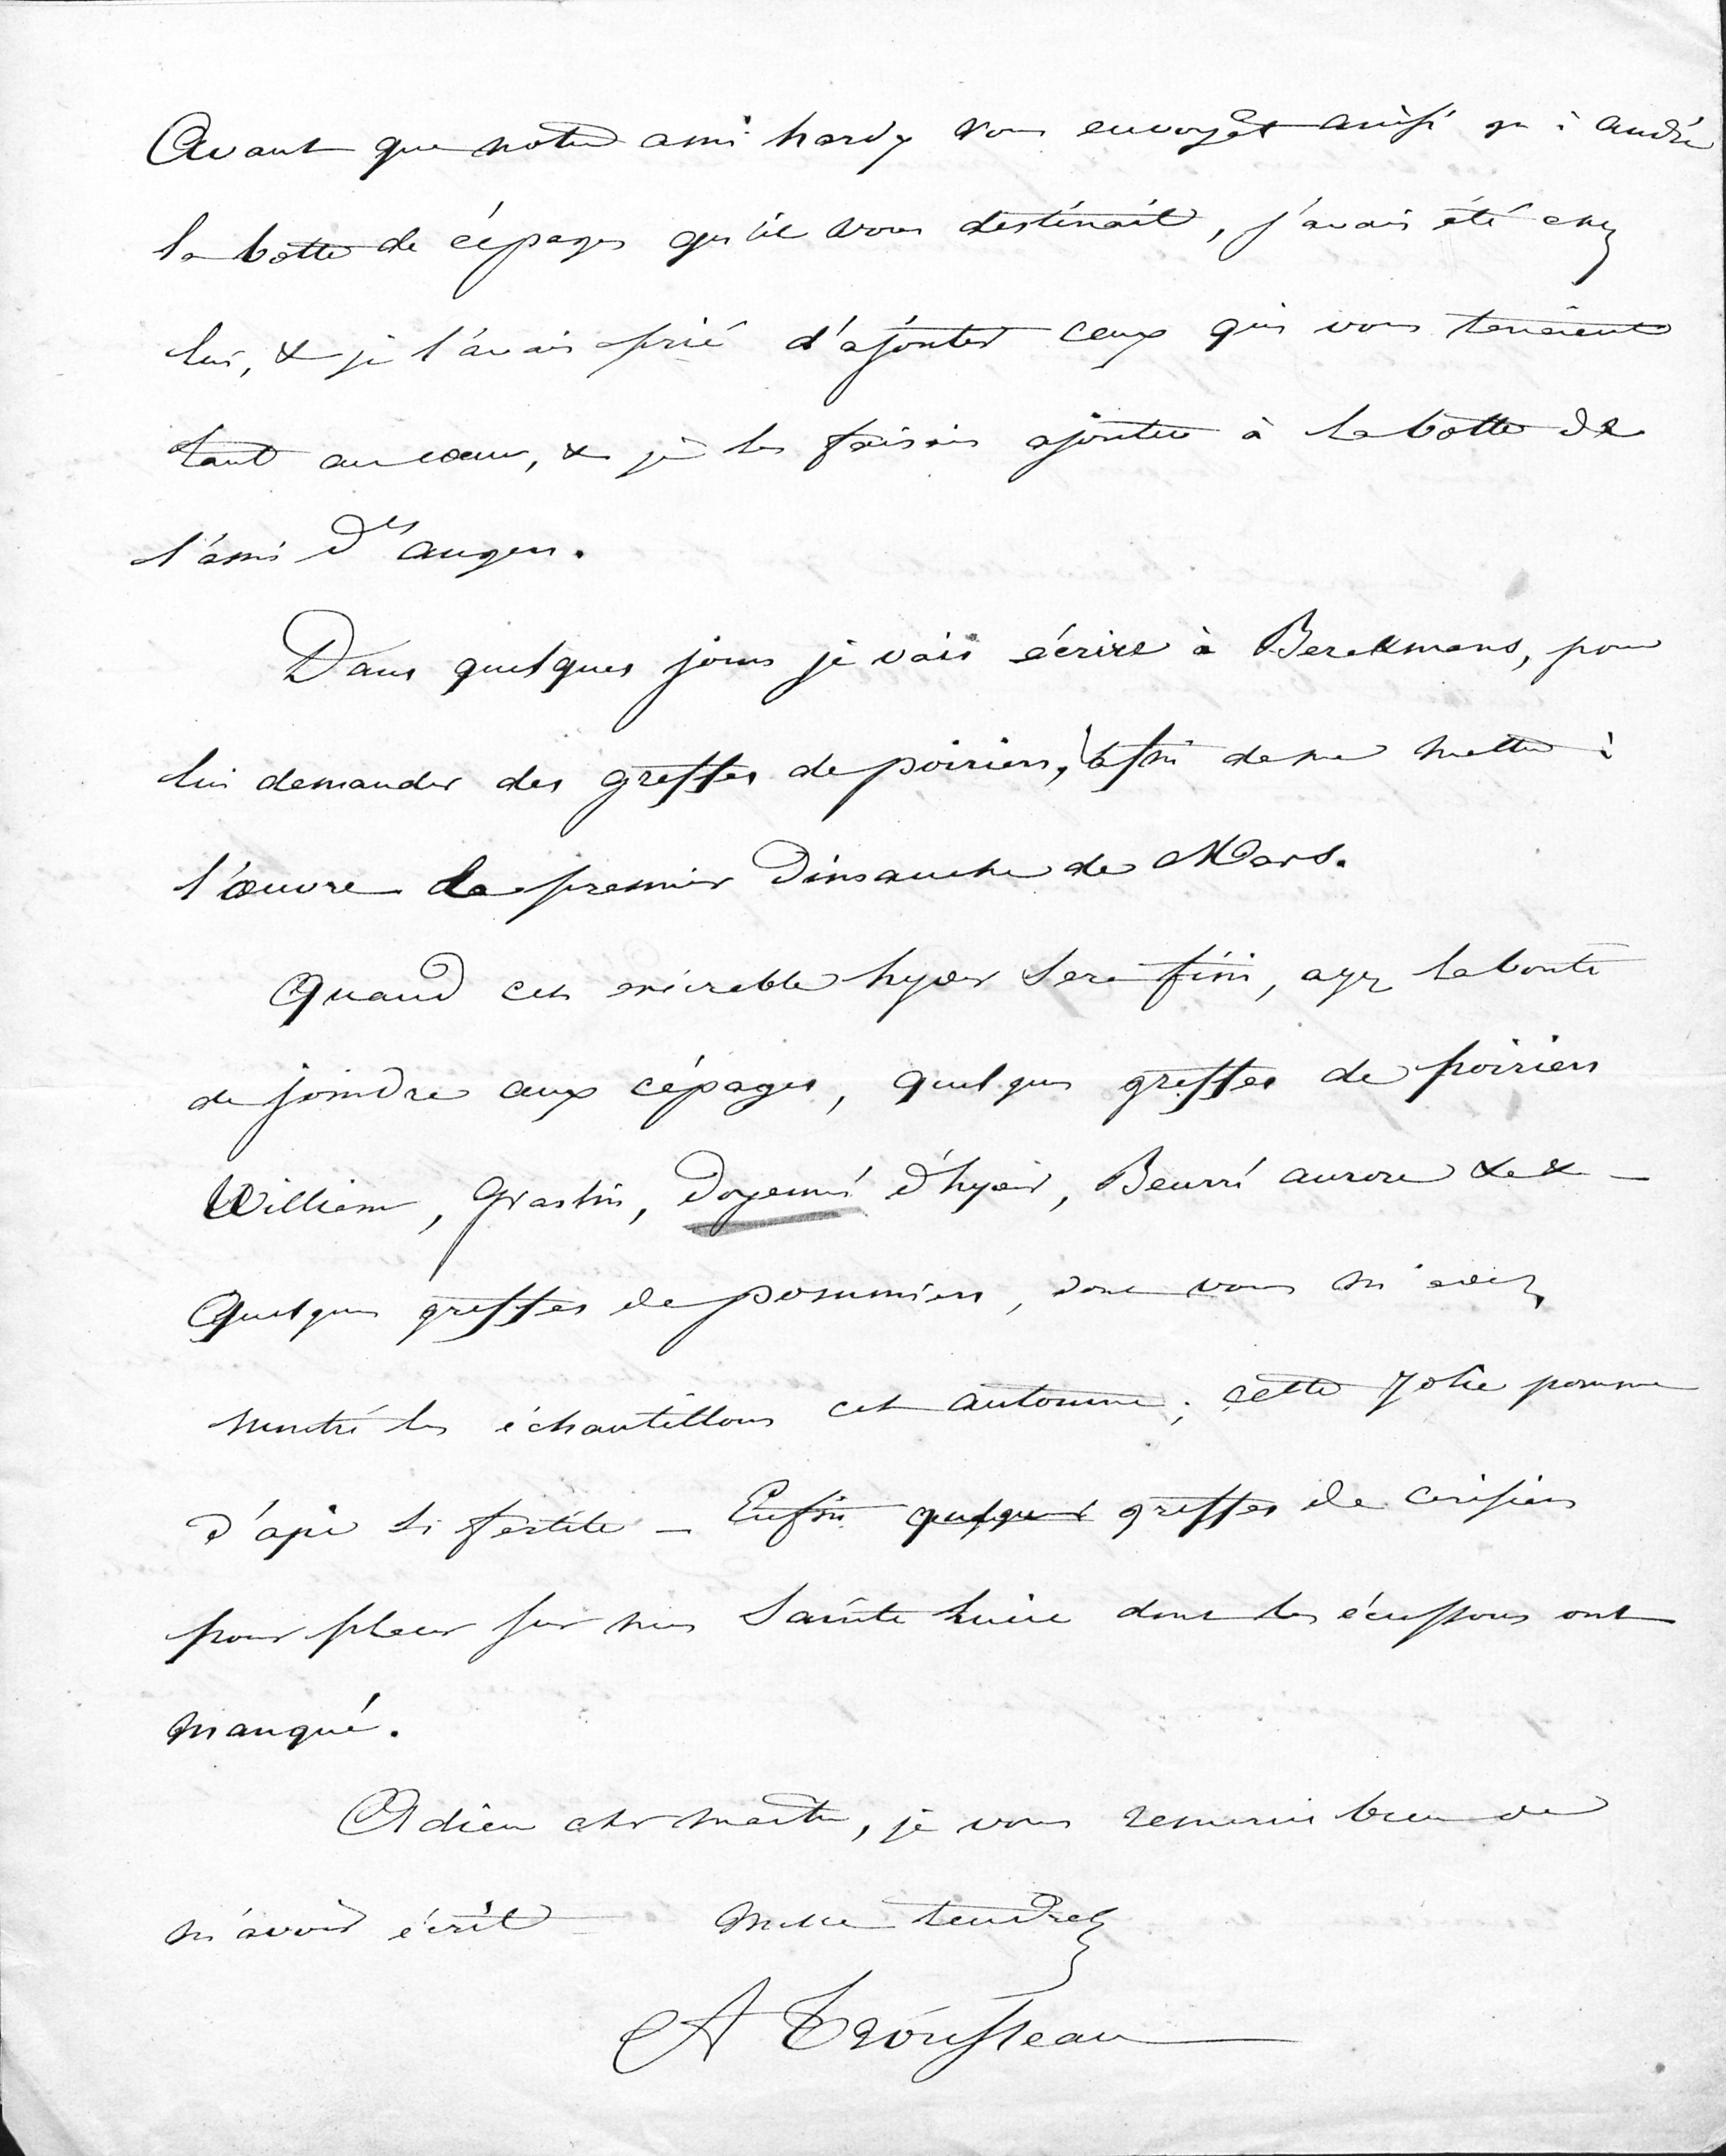 Avant que notre ami hardy vous envoyât ainsi qu'à andré
la botte de cépages qu'il vous destinait, j'avais été chez
lui, & je l'avais prié d'ajouter ceux qui vous tenaient
tant au coeur, & je les faisais ajouter à la botte de
l'ami Des angers.
Dans quelques jours je vais écrire à Berckmans, pour
lui demander des greffes de poiriers, afin de me mettre à
l'œuvre le premier Dimanche de Mars.
Quand cet exécrable hyver sera fini, ayez la bonté
de joindre aux cépages, quelques greffes de poiriers
William, Graslin, Doyenné d'hyver, Beurré aurore & &
Quelques greffes de pommiers, dont vous m'avez
montré les échantillons cet automne ; cette jolie pomme
d'api si fertile _ Enfin quelques greffes de cerisiers
pour placer sur mes Sainte Lucie dont les écussons ont
manqué.
Adieu cher maître, je vous remercie bien de
m'avoir écrit mille tendresses
A Trousseau